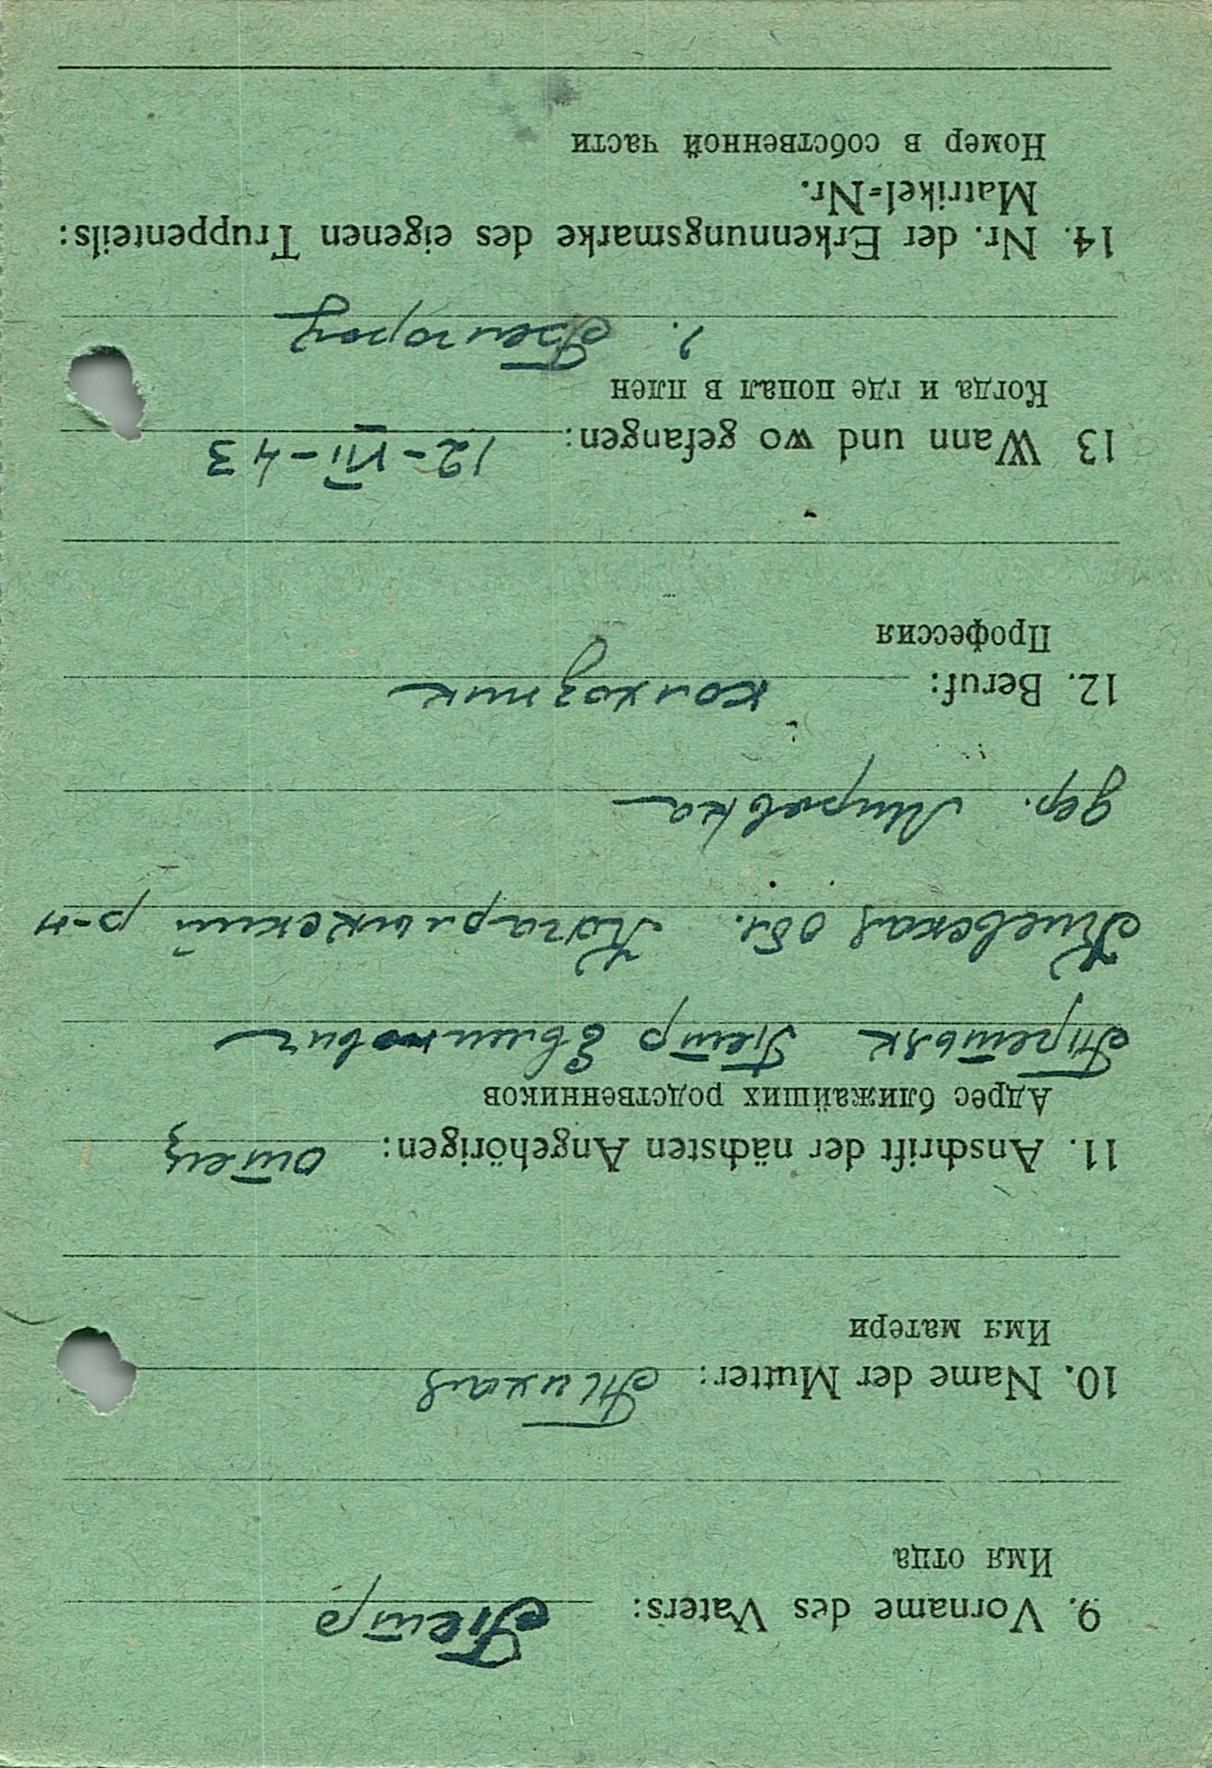 9. Vorname des Vaters: Петр
Имя отца
10. Name der Mutter: Тихая
Имя матери
11. Anschrift der nächsten Angehörigen: отец
Адрес ближайших родственников
Третьяк Петр
Киевская обл. Кагарлыкский р-н
дер. Мировка
12. Beruf: колхозник
Профессия
13 Wann und wo gefangen: 12-VII-43
Когда и где попал в плен
г. Белгород
14. Nr. der Erkennungsmarke des eigenen Truppenteils:
Matrikel=Nr.
Номер в собственной части